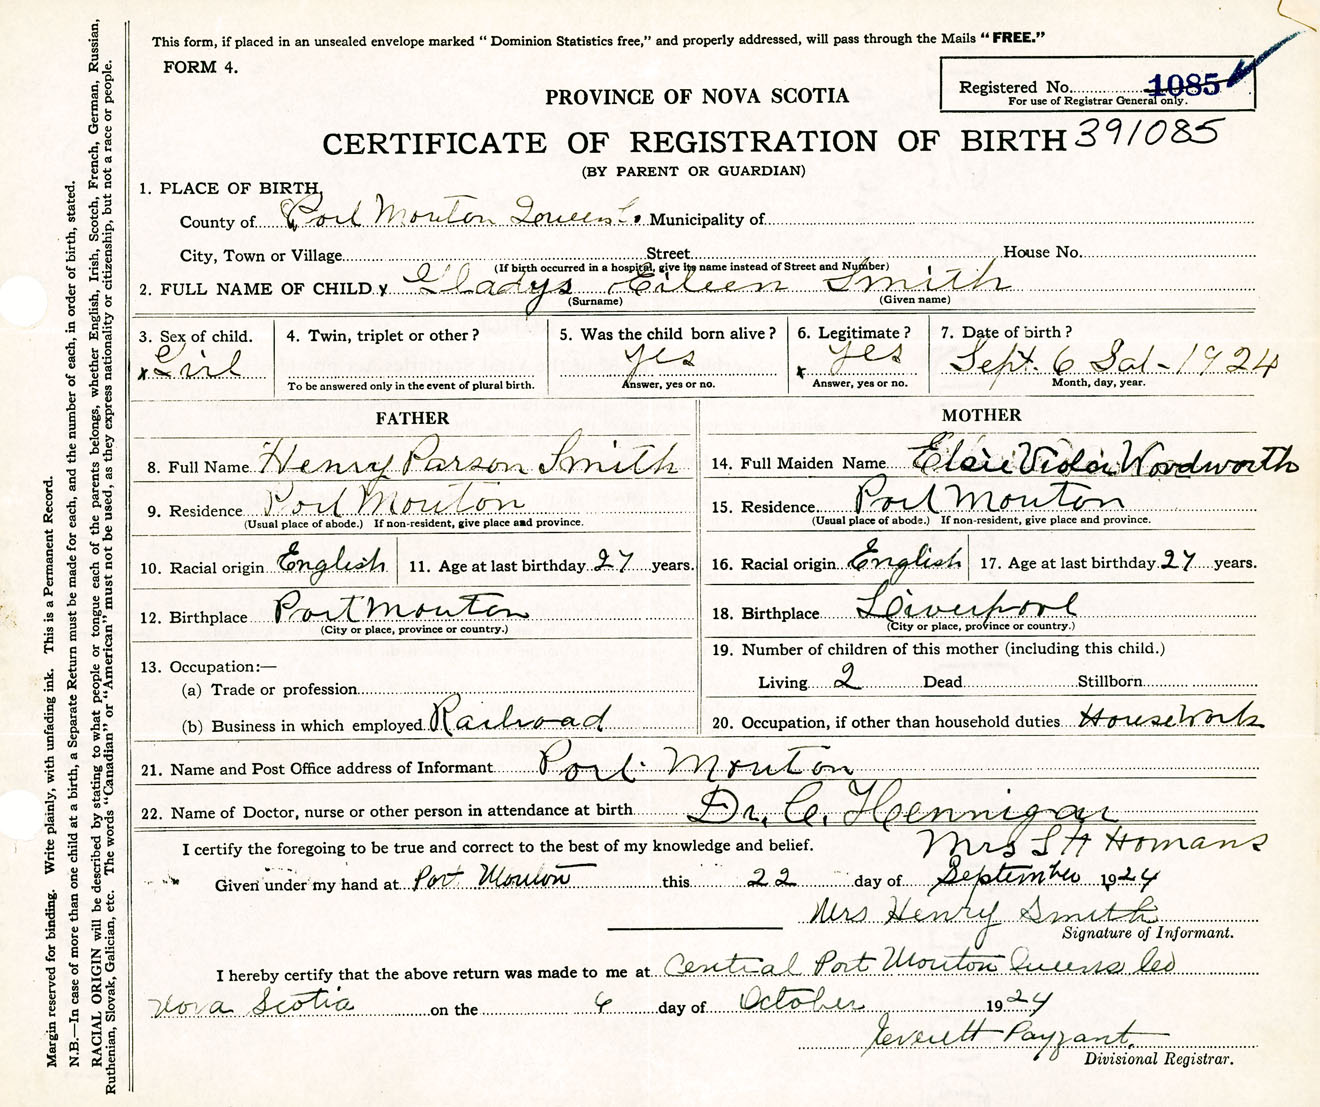 This form, if placed in an unsealed envelope marked “ Dominion Statistics free,” and properly addressed, will pass through the Mails “ FREE.”
FORM 4.
Registered No. 1085
For use of Registrar General only.
PROVINCE OF NOVA SCOTIA
CERTIFICATE OF REGISTRATION OF BIRTH 391085
(BY PARENT OR GUARDIAN)
1. PLACE OF BIRTH,
County of Port Mouton Queens Co. Municipality of
City, Town or Village Street House No.
(If birth occurred in a hospital, give its name instead of Street and Number)
2. FULL NAME OF CHILD x Gladys Eileen Smith
(Surname) (Given name)
3. Sex of child. 4. Twin, triplet or other ? 5. Was the child born alive ? 6. Legitimate ? 7. Date of birth ?
x Girl yes x yes Sept. 6 Sat - 1924
To be answered only in the event of plural birth. Answer, yes or no. Answer, yes or no. Month, day, year.
FATHER MOTHER
8. Full Name Henry Parson Smith 14. Full Maiden Name Elsie Viola Woodworth
9. Residence Port Mouton 15. Residence Port Mouton
(Usual place of abode.) If non-resident, give place and province. (Usual place of abode.) If non-resident, give place and province.
10. Racial origin English 11. Age at last birthday 27 years. 16. Racial origin English 17. Age at last birthday 27 years.
12. Birthplace Port Mouton 18. Birthplace Liverpool
(City or place, province or country.) (City or place, province or country.)
13. Occupation:— 19. Number of children of this mother (including this child.)
(a) Trade or profession Living 2 Dead Stillborn
(b) Business in which employed Railroad 20. Occupation, if other than household duties HouseWork
21. Name and Post Office address of Informant Port Mouton
22. Name of Doctor, nurse or other person in attendance at birth Dr. C. Hennigar
I certify the foregoing to be true and correct to the best of my knowledge and belief. Mrs S A Homans
Given under my hand at Port Mouton this 22 day of September 1924
Mrs Henry Smith
Signature of Informant.
I hereby certify that the above return was made to me at Central Port Mouton Queens Co
Nova Scotia on the 6 day of October 1924
Everett Payzant.
Divisional Registrar.
Margin reserved for binding. Write plainly, with unfading ink. This is a Permanent Record.
N.B.—In case of more than one child at a birth, a Separate Return must be made for each, and the number of each, in order of birth, stated.
RACIAL ORIGIN will be described by stating to what people or tongue each of the parents belongs, whether English, Irish, Scotch, French, German, Russian,
Ruthenian, Slovak, Galician, etc. The words “Canadian” or “American” must not be used, as they express nationality or citizenship, but not a race or people.